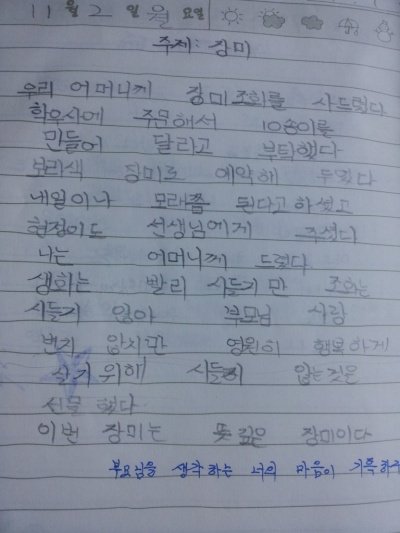 11월 2일 월요일
주제: 장미
우리 어머니께 장미조화를 사드렸다
화원사에 주문해서 10송이를
만들어 달라고 부탁했다
보라색 장미로 예약해 두었다
내일이나 모래쯤 된다고 하셨고
현정이도 선생님에게 주셨다
나는 어머니께 드렸다
생화는 빨리 시들기만 조화는
시들기 않아 부모님 사랑
변치 않지만 영원히 행복하게
살기 위해 시들히 않는것은
선물 했다
이번 장미는 뜻깊은 장미이다
부모님을 생각하는 너의 마음이 기특하